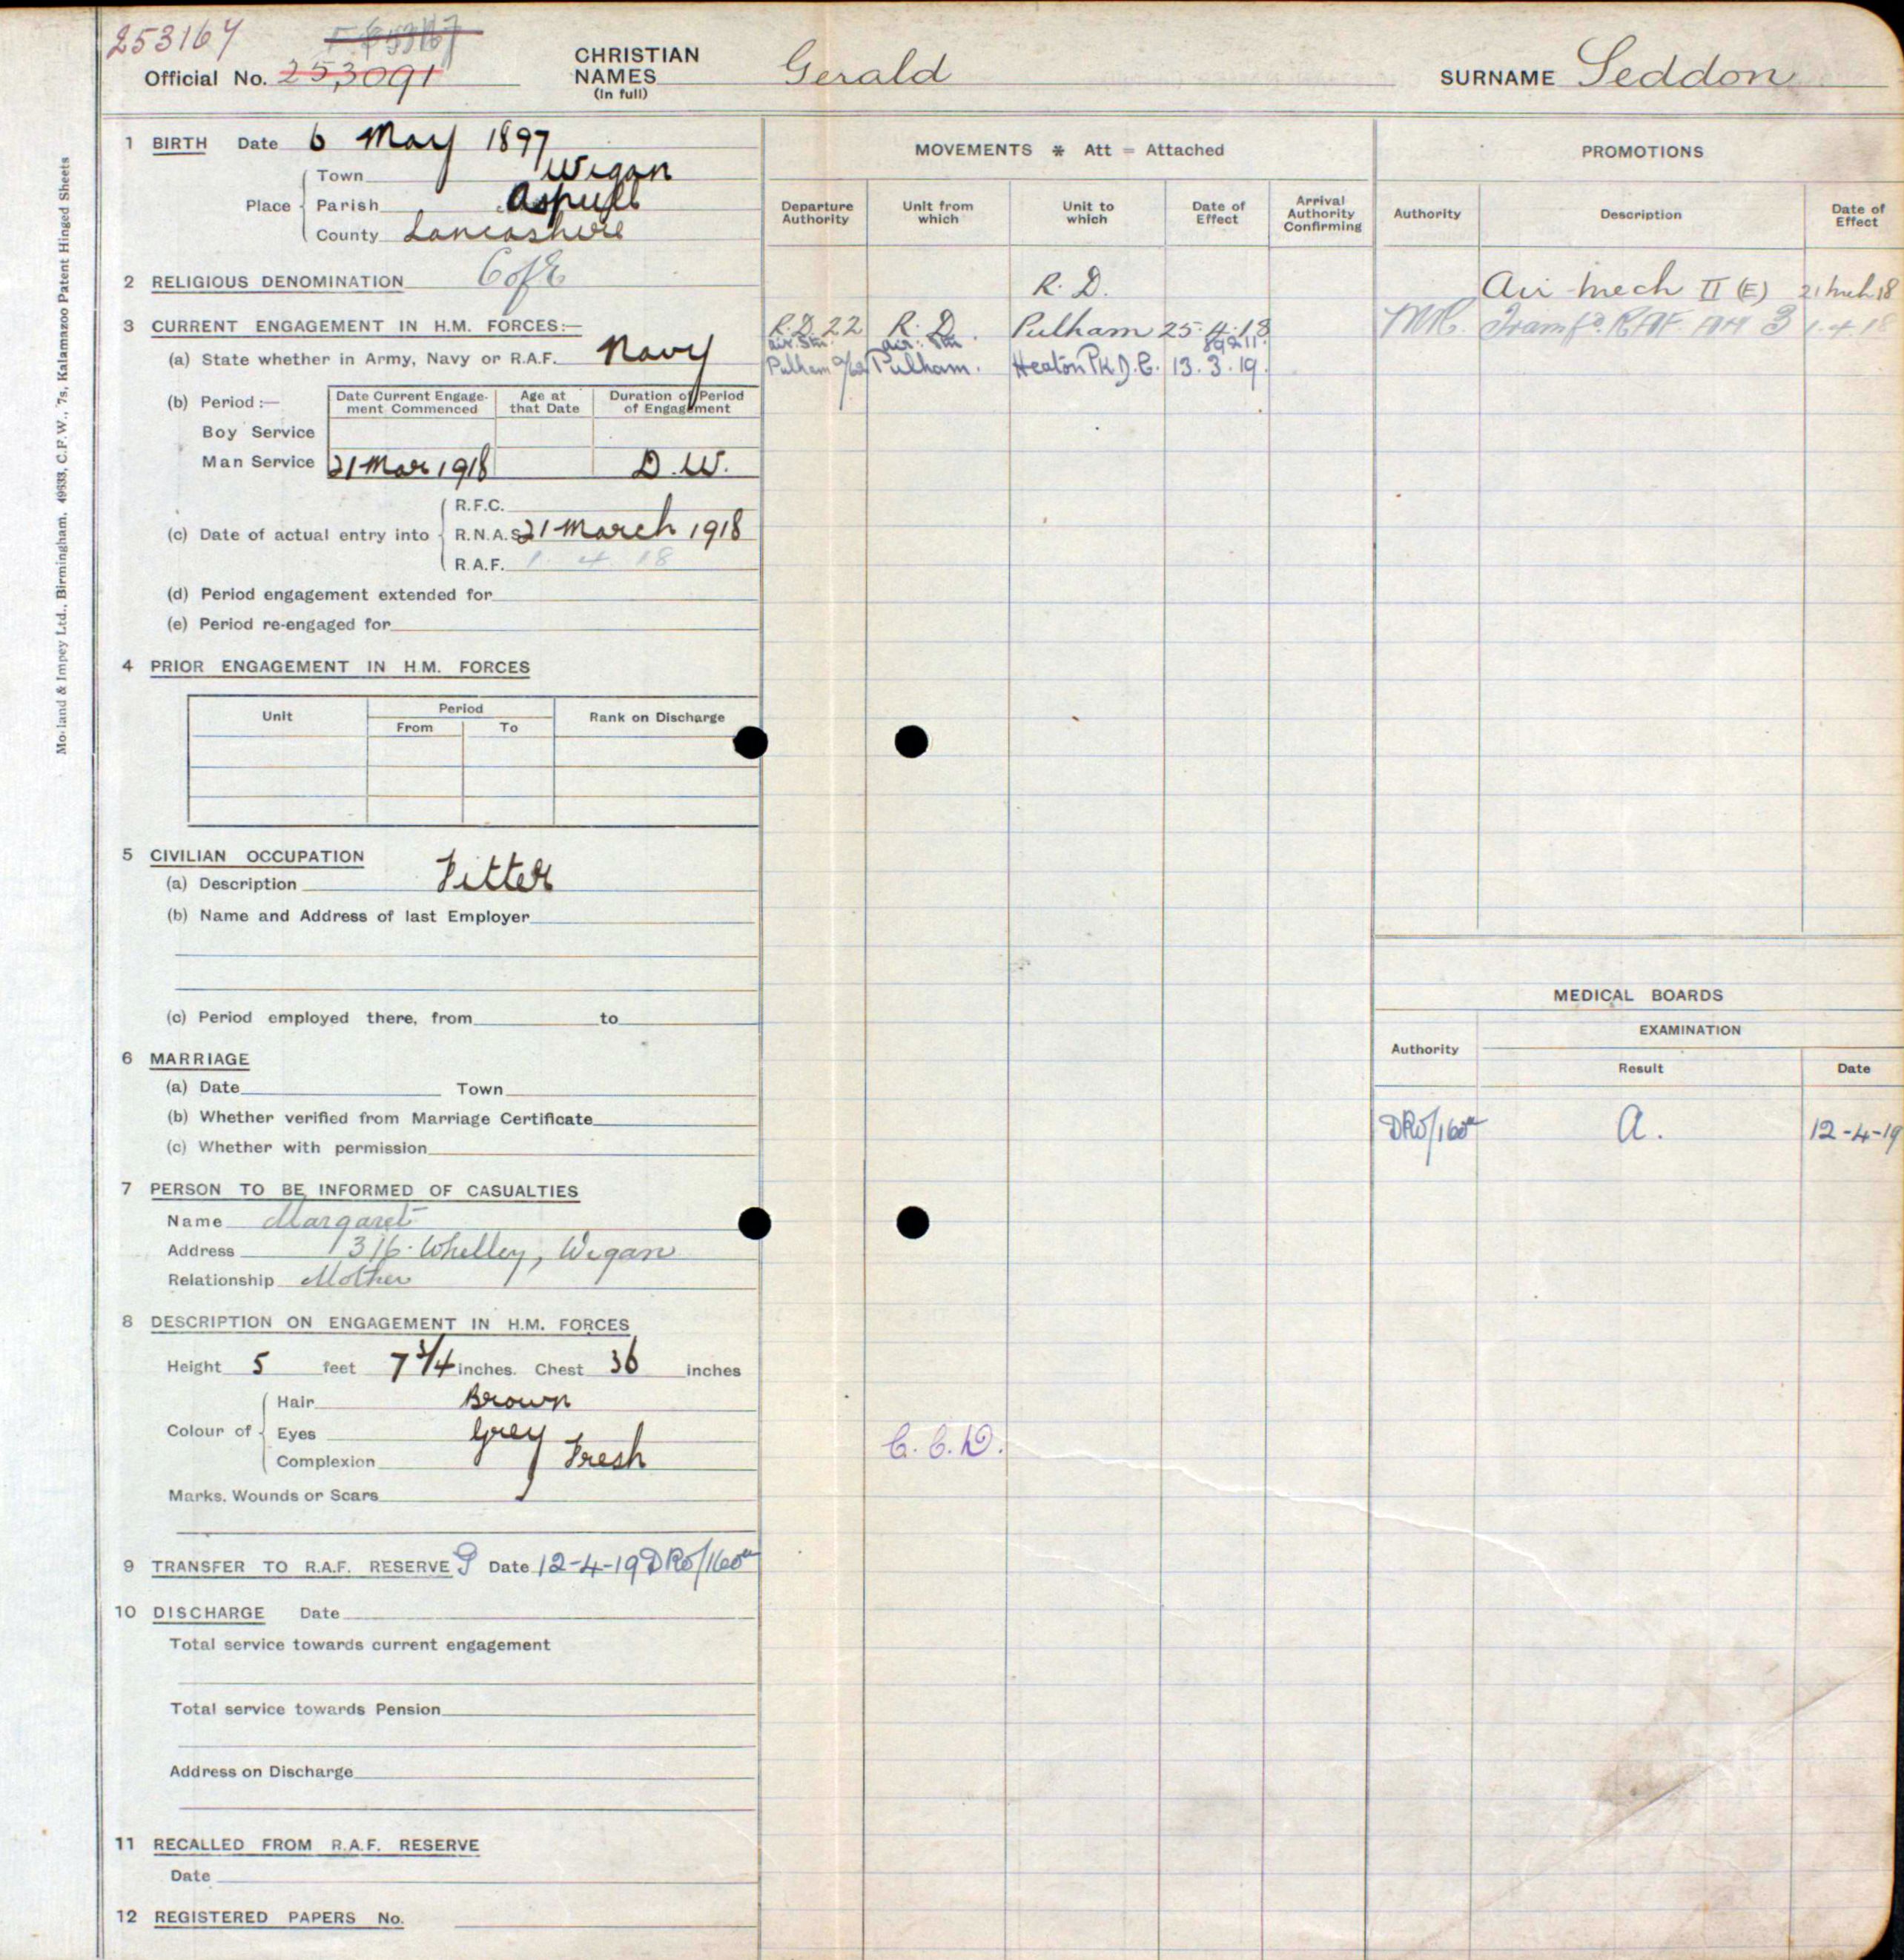 253167
Official No. 253091
CHRISTIAN NAMES (In full) Gerald
SURNAME Seddon
Morland & Impey Ltd., Birmingham. 49633, C.F.W., 7s, Kalamazoo Patent Hinged Sheets
1 BIRTH Date 6 May 1897
Place
Town Wigan
Parish Aspull
County Lancashire
2 RELIGIOUS DENOMINATION C of E
3 CURRENT ENGAGEMENT IN H.M. FORCES:—
(a) State whether in Army, Navy or R.A.F. Navy
(b) Period:—
Date Current Engage-ment Commenced
Age at that Date
Duration of Period of Engagement
Boy Service
Man Service 21 Mar 1918 D.W.
(c) Date of actual entry into
R.F.C.
R.N.A.S. 21 March 1918
R.A.F. 1. 4 18
(d) Period engagement extended for
(e) Period re-engaged for
4 PRIOR ENGAGEMENT IN H.M. FORCES
Unit
Period
From To
Rank on Discharge
5 CIVILIAN OCCUPATION
(a) Description Fitter
(b) Name and Address of last Employer
(c) Period employed there, from to
6 MARRIAGE
(a) Date Town
(b) Whether verified from Marriage Certificate
(c) Whether with permission
7 PERSON TO BE INFORMED OF CASUALTIES
Name Margaret
Address 316. Whelley, Wigan
Relationship Mother
8 DESCRIPTION ON ENGAGEMENT IN H.M. FORCES
Height 5 feet 7 3/4 inches. Chest 36 inches
Colour of
Hair Brown
Eyes Grey
Complexion Fresh
Marks, Wounds or Scars
9 TRANSFER TO R.A.F. RESERVE Date 12-4-19 DRO/160
10 DISCHARGE Date
Total service towards current engagement
Total service towards Pension
Address on Discharge
11 RECALLED FROM R.A.F. RESERVE
Date
12 REGISTERED PAPERS No.
MOVEMENTS * Att = Attached
Departure Authority
Unit from which
Unit to which
Date of Effect
Arrival Authority Confirming
R. D.
R.D. 22 R. D. Pulham 25.4.18
Air Stn. Air. Stn.
Pulham Pulham. Heaton Pk D.C. 13.3.19.
C.C.D.
PROMOTIONS
Authority
Description
Date of Effect
Air Mech II (E) 21 Mch 18
MR. Transfd. RAF. AM 3 1.4.18
MEDICAL BOARDS
Authority
EXAMINATION
Result
Date
DRO/160 A. 12-4-19